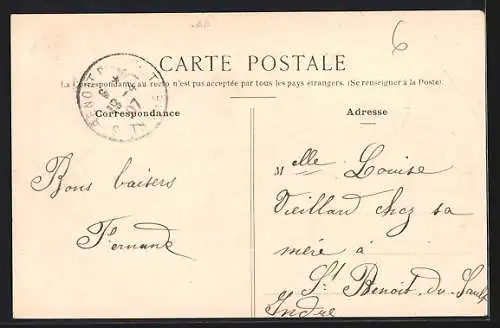 6
CARTE POSTALE
La Correspondance au recto n'est pas acceptée par tous les pays étrangers. (Se renseigner à la Poste)
Correspondance
Adresse
Bons baisers
Fernand
Melle Louise
Vieillard chez sa
mère à
St Benoit-du-Sault
Indre